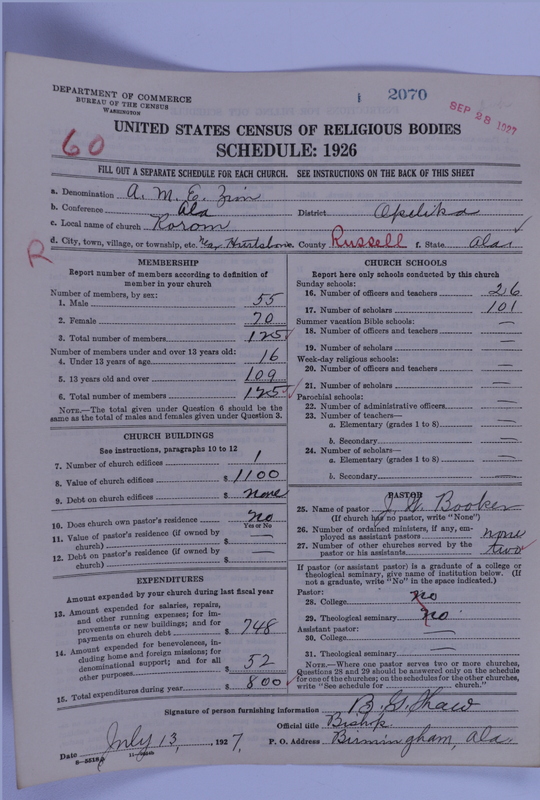 DEPARTMENT OF COMMERCE
BUREAU OF THE CENSUS
WASHINGTON
2070
SEP 28 1927
60
UNITED STATES CENSUS OF RELIGIOUS BODIES
SCHEDULE: 1926
FILL OUT A SEPARATE SCHEDULE FOR EACH CHURCH. SEE INSTRUCTIONS ON THE BACK OF THIS SHEET
a. Denomination A. M. E. Zion
b. Conference Ala District Opelika
c. Local name of church Korom
R
d. City, town, village, or township, etc. Near Hurtsboro County Russell f. State Ala.
MEMBERSHIP
Report number of members according to definition of
member in your church
Number of members, by sex:
1. Male 55
2. Female 70
3. Total number of members 125
Number of members under and over 13 years old:
4. Under 13 years of age 16
5. 13 years old and over 109
6. Total number of members 125
NOTE.—The total given under Question 6 should be
same as the total of males and females given under Question 3.
CHURCH BUILDINGS
See instructions, paragraphs 10 to 12
7. Number of church edifices 1
8. Value of church edifices $ 1100
9. Debt on church edifices $ none
10. Does church own pastor's residence No
Yes or No
11. Value of pastor's residence (if owned by
church) $ —
12. Debt on pastor's residence (if owned by
church) $ —
EXPENDITURES
Amount expended by your church during last fiscal year
13. Amount expended for salaries, repairs,
and other running expenses; for im-
provements or new buildings; and for
payments on church debt $ 748
14. Amount expended for benevolences, in-
cluding home and foreign missions; for
denominational support; and for all
other purposes 52
15. Total expenditures during year $ 800
CHURCH SCHOOLS
Report here only schools conducted by this church
Sunday schools:
16. Number of officers and teachers 26
17. Number of scholars 101
Summer vacation Bible schools:
18. Number of officers and teachers —
19. Number of scholars —
Week-day religious schools:
20. Number of officers and teachers —
21. Number of scholars —
Parochial schools:
22. Number of administrative officers —
23. Number of teachers—
a. Elementary (grades 1 to 8) —
b. Secondary —
24. Number of scholars—
a. Elementary (grades 1 to 8) —
b. Secondary —
PASTOR
25. Name of pastor J. W. Booker
(If church has no pastor, write "None")
26. Number of ordained ministers, if any, em-
ployed as assistant pastors none
27. Number of other churches served by the
pastor or his assistants two
If pastor (or assistant pastor) is a graduate of a college or
theological seminary, give name of institution below. (If
not a graduate, write "No" in the space indicated.)
Pastor:
28. College no
29. Theological seminary no
Assistant pastor:
30. College —
31. Theological seminary —
NOTE.—Where one pastor serves two or more churches,
Questions 28 and 29 should be answered only on the schedule
for one of the churches; on the schedules for the other churches,
write "See schedule for church."
Signature of person furnishing information B. G. Shaw
Official title Bishop
Date July 13, 1927. P. O. Address Birmingham, Ala.